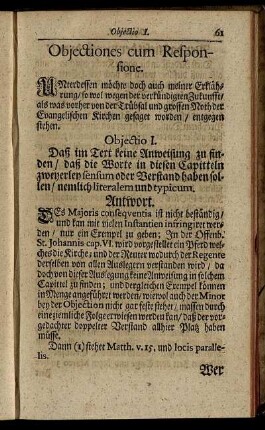 Objectio I. 61
Objectiones cum Respon-
sione.
UNterdessen möchte doch auch meiner Erklä-
rung/ so wol wegen der verkündigten Zukunfft/
als was vorher von der Trübsal und grossen Noth der
Evangelischen Kirchen gesaget worden/ entgegen
stehen.
Objectio I.
Daß im Text keine Anweißung zu fin-
den/ daß die Worte in diesen Capitteln
zweyerley sensum oder Verstand haben sol-
len/ nemlich literalem und typicum.
Antwort.
DEs Majoris conseqventia ist nicht beständig/
und kan mit vielen Instantien infringiret wer-
den/ nur ein Exempel zu geben; In der Offenb.
St. Johannis cap. VI. wird vorgestellet ein Pferd wel-
ches die Kirche/ und der Reuter wodurch der Regente
derselben von allen Auslegern verstanden wird/ da
doch von dieser Auslegung keine Anweisung in selchem
Capittel zu finden; und dergleichen Exempel können
in Menge angeführet werden/ wiewol auch der Minor
bey der Objection nicht gar feste stehet/ massen durch
eine ziemliche Folge erwiesen werden kan/ daß der vor-
gedachter doppelter Verstand allhier Platz haben
müsse.
Dann (1) stehet Matth. v. 15. und locis paralle-
lis.
Wer